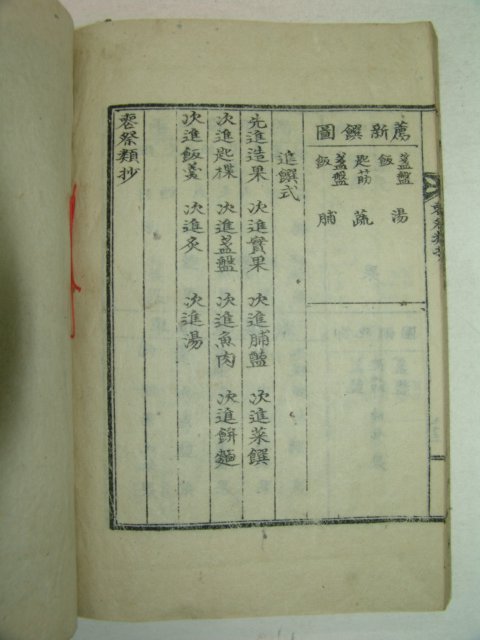 薦新饌圖
盞盤 湯
飯
匙筯 蔬
盞盤 脯
飯
進饌式
先進造果 次進實果 次進脯醢 次進菜饌
次進匙楪 次進盞盤 次進魚肉 次進餅麵
次進飯羹 次進炙 次進湯
喪祭類抄
喪祭類抄